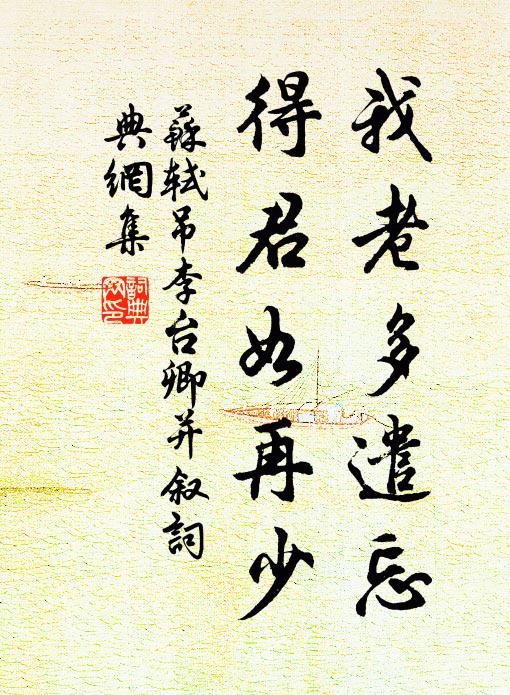 我老多遣忘
得君如再少
蘇軾吊李台卿并叙詞
典網集
詞典
网印